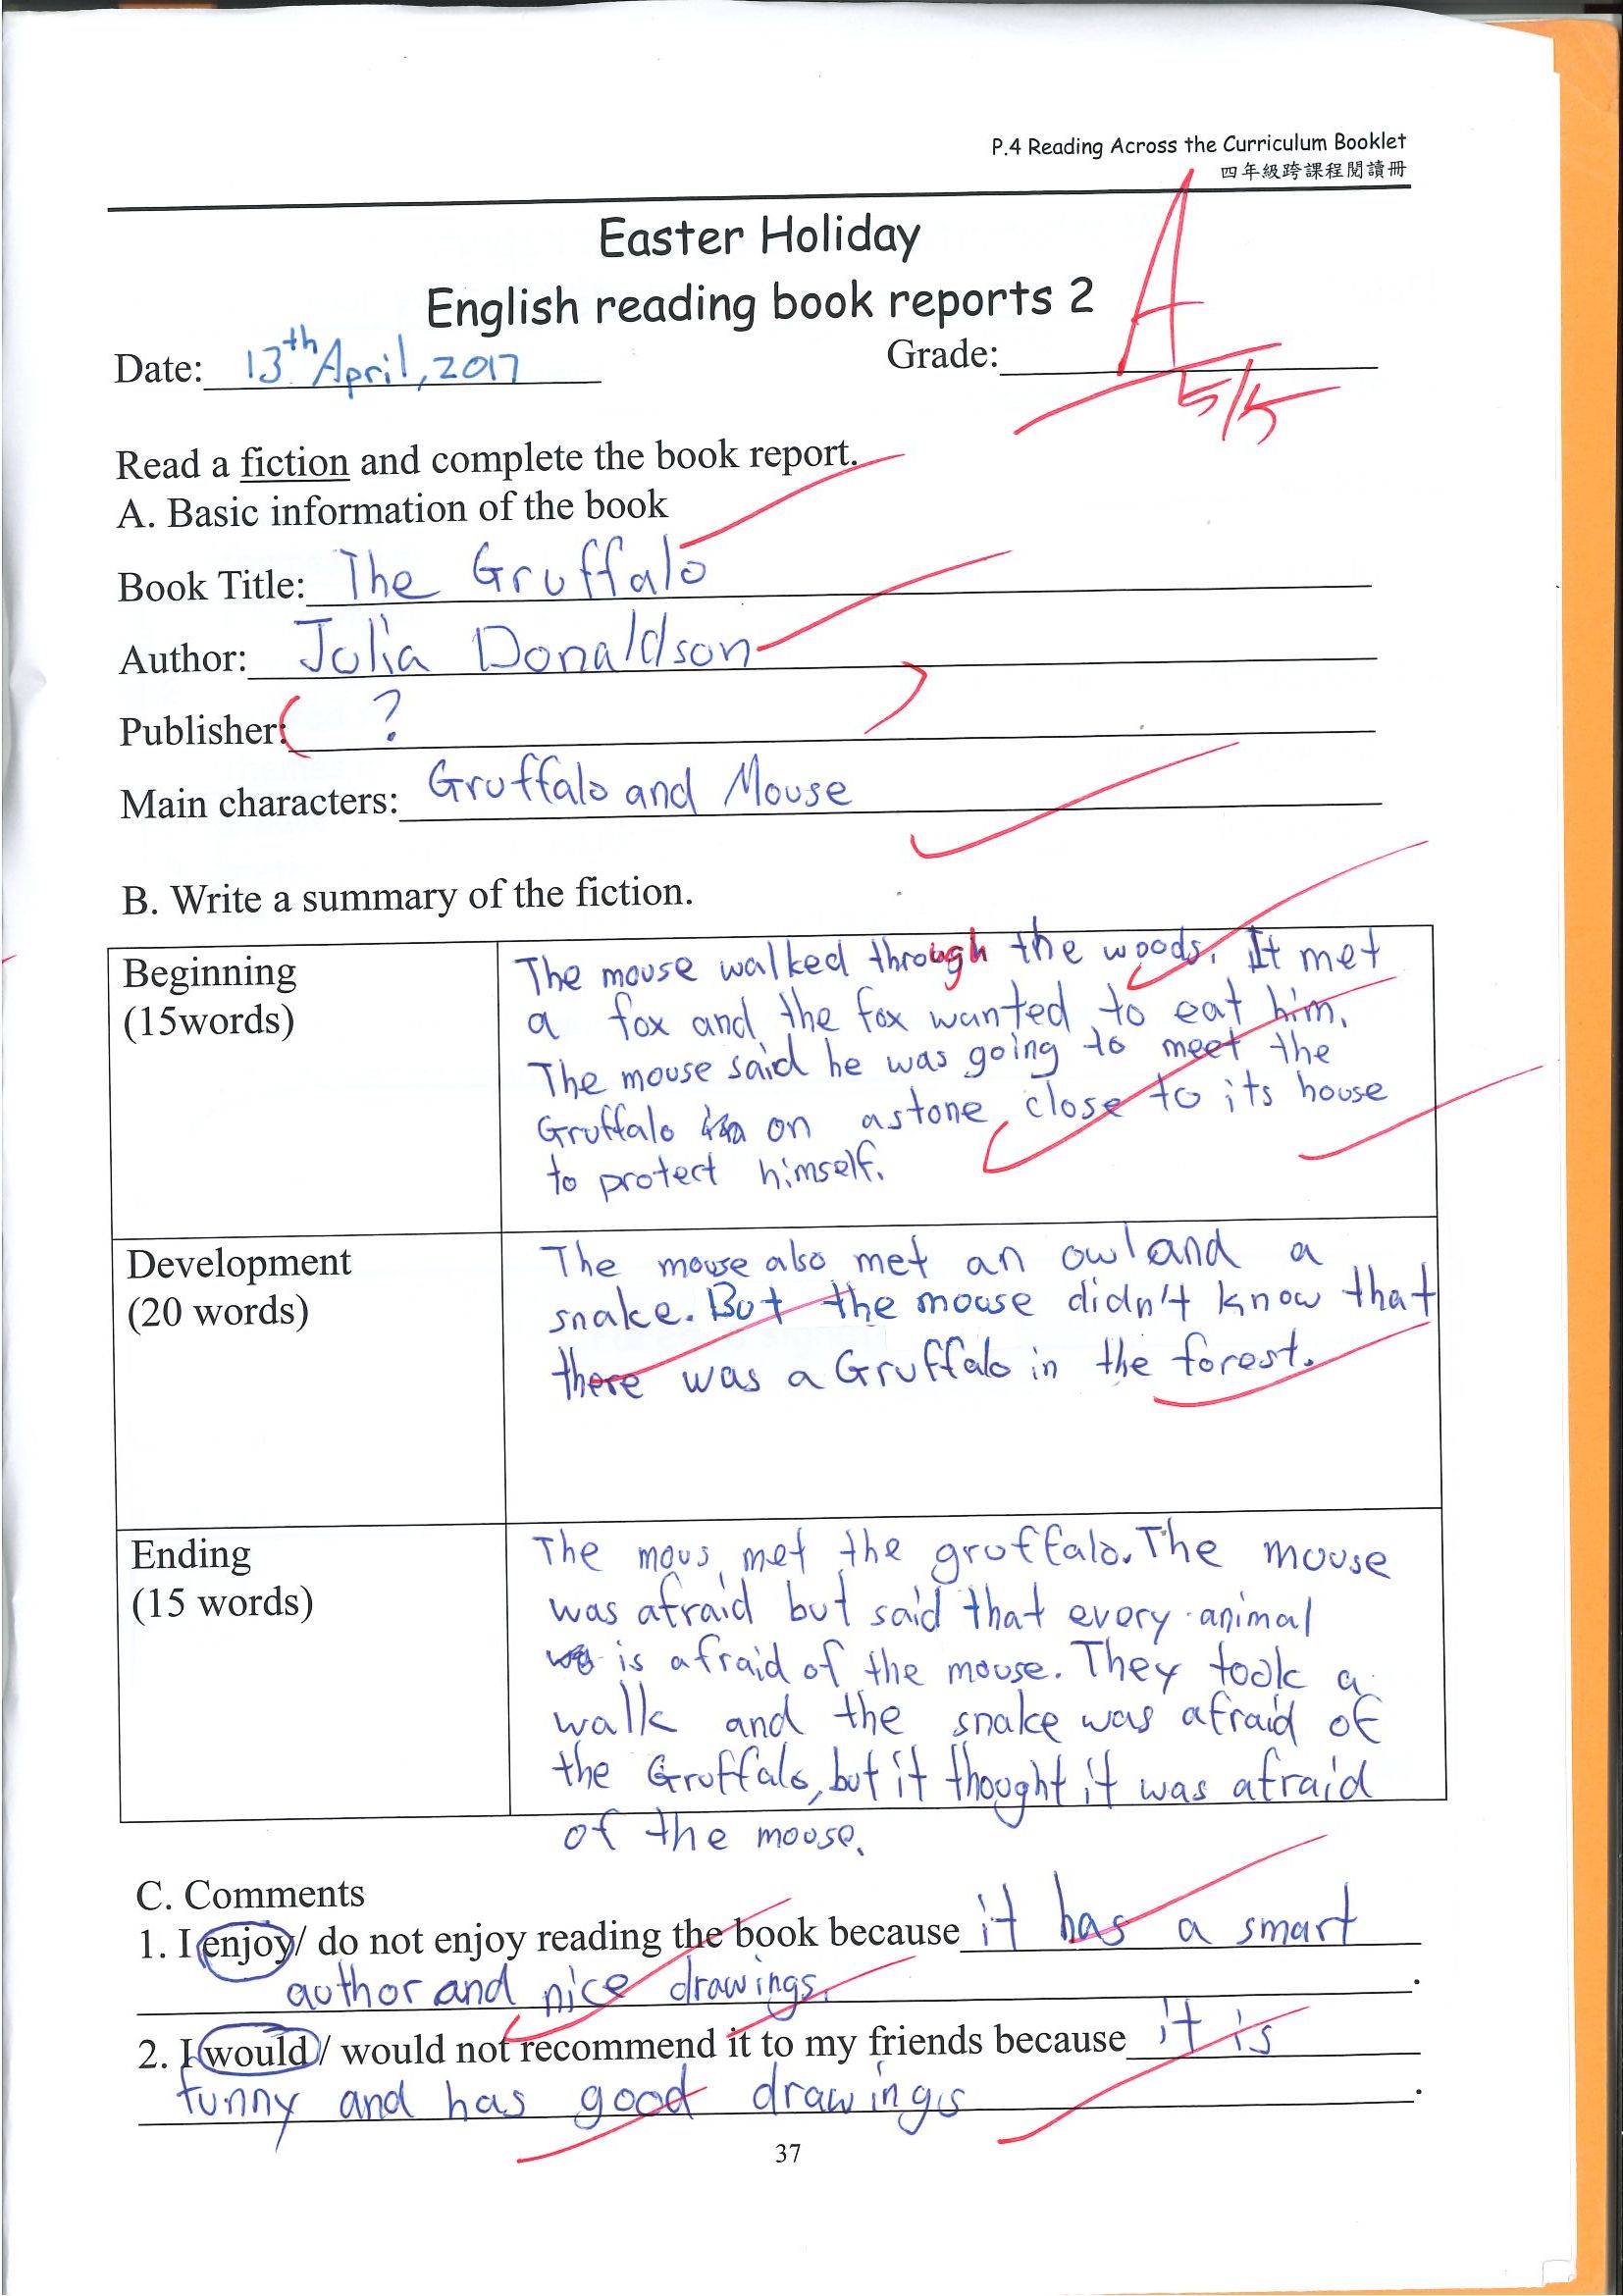 P.4 Reading Across the Curriculum Booklet
四年級跨課程閱讀冊
Easter Holiday
English reading book reports 2
Date: 13th April, 2017 Grade: A
5/5
Read a fiction and complete the book report.
A. Basic information of the book
Book Title: The Gruffalo
Author: Julia Donaldson
Publisher: ( ? )
Main characters: Gruffalo and Mouse
B. Write a summary of the fiction.
Beginning
(15words)
The mouse walked through the woods. It met
a fox and the fox wanted to eat him.
The mouse said he was going to meet the
Gruffalo on a stone close to its house
to protect himself.
Development
(20 words)
The mouse also met an owl and a
snake. But the mouse didn't know that
there was a Gruffalo in the forest.
Ending
(15 words)
The mous met the gruffalo. The mouse
was afraid but said that every animal
is afraid of the mouse. They took a
walk and the snake was afraid of
the Gruffalo, but it thought it was afraid
of the mouse.
C. Comments
1. I enjoy/ do not enjoy reading the book because it has a smart
author and nice drawings.
2. I would / would not recommend it to my friends because it is
funny and has good drawings.
37